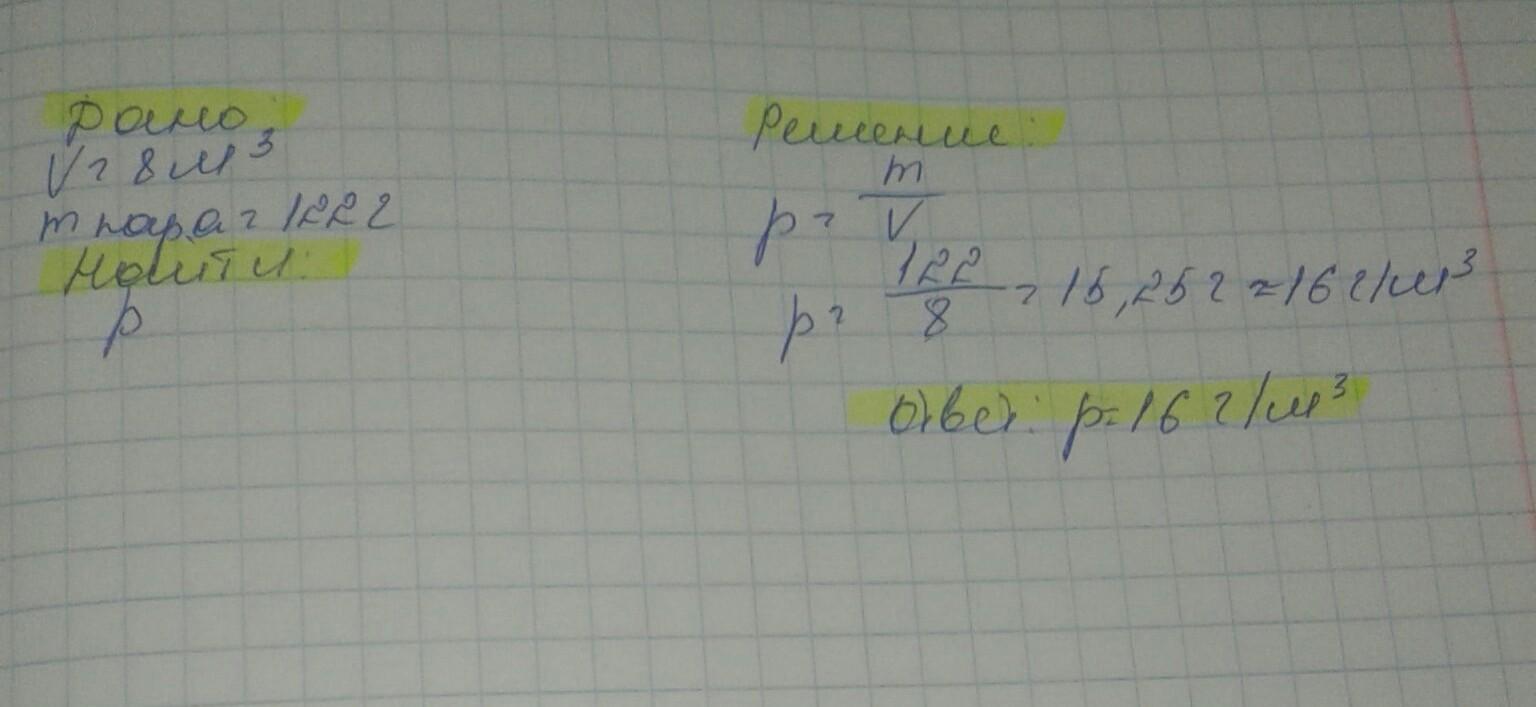 Дано
V = 8 м³
m пара = 122 г
Найти:
p
Решение:
p = m/V
p = 122/8 = 15,25 г ≈ 16 г/м³
Ответ: p = 16 г/м³